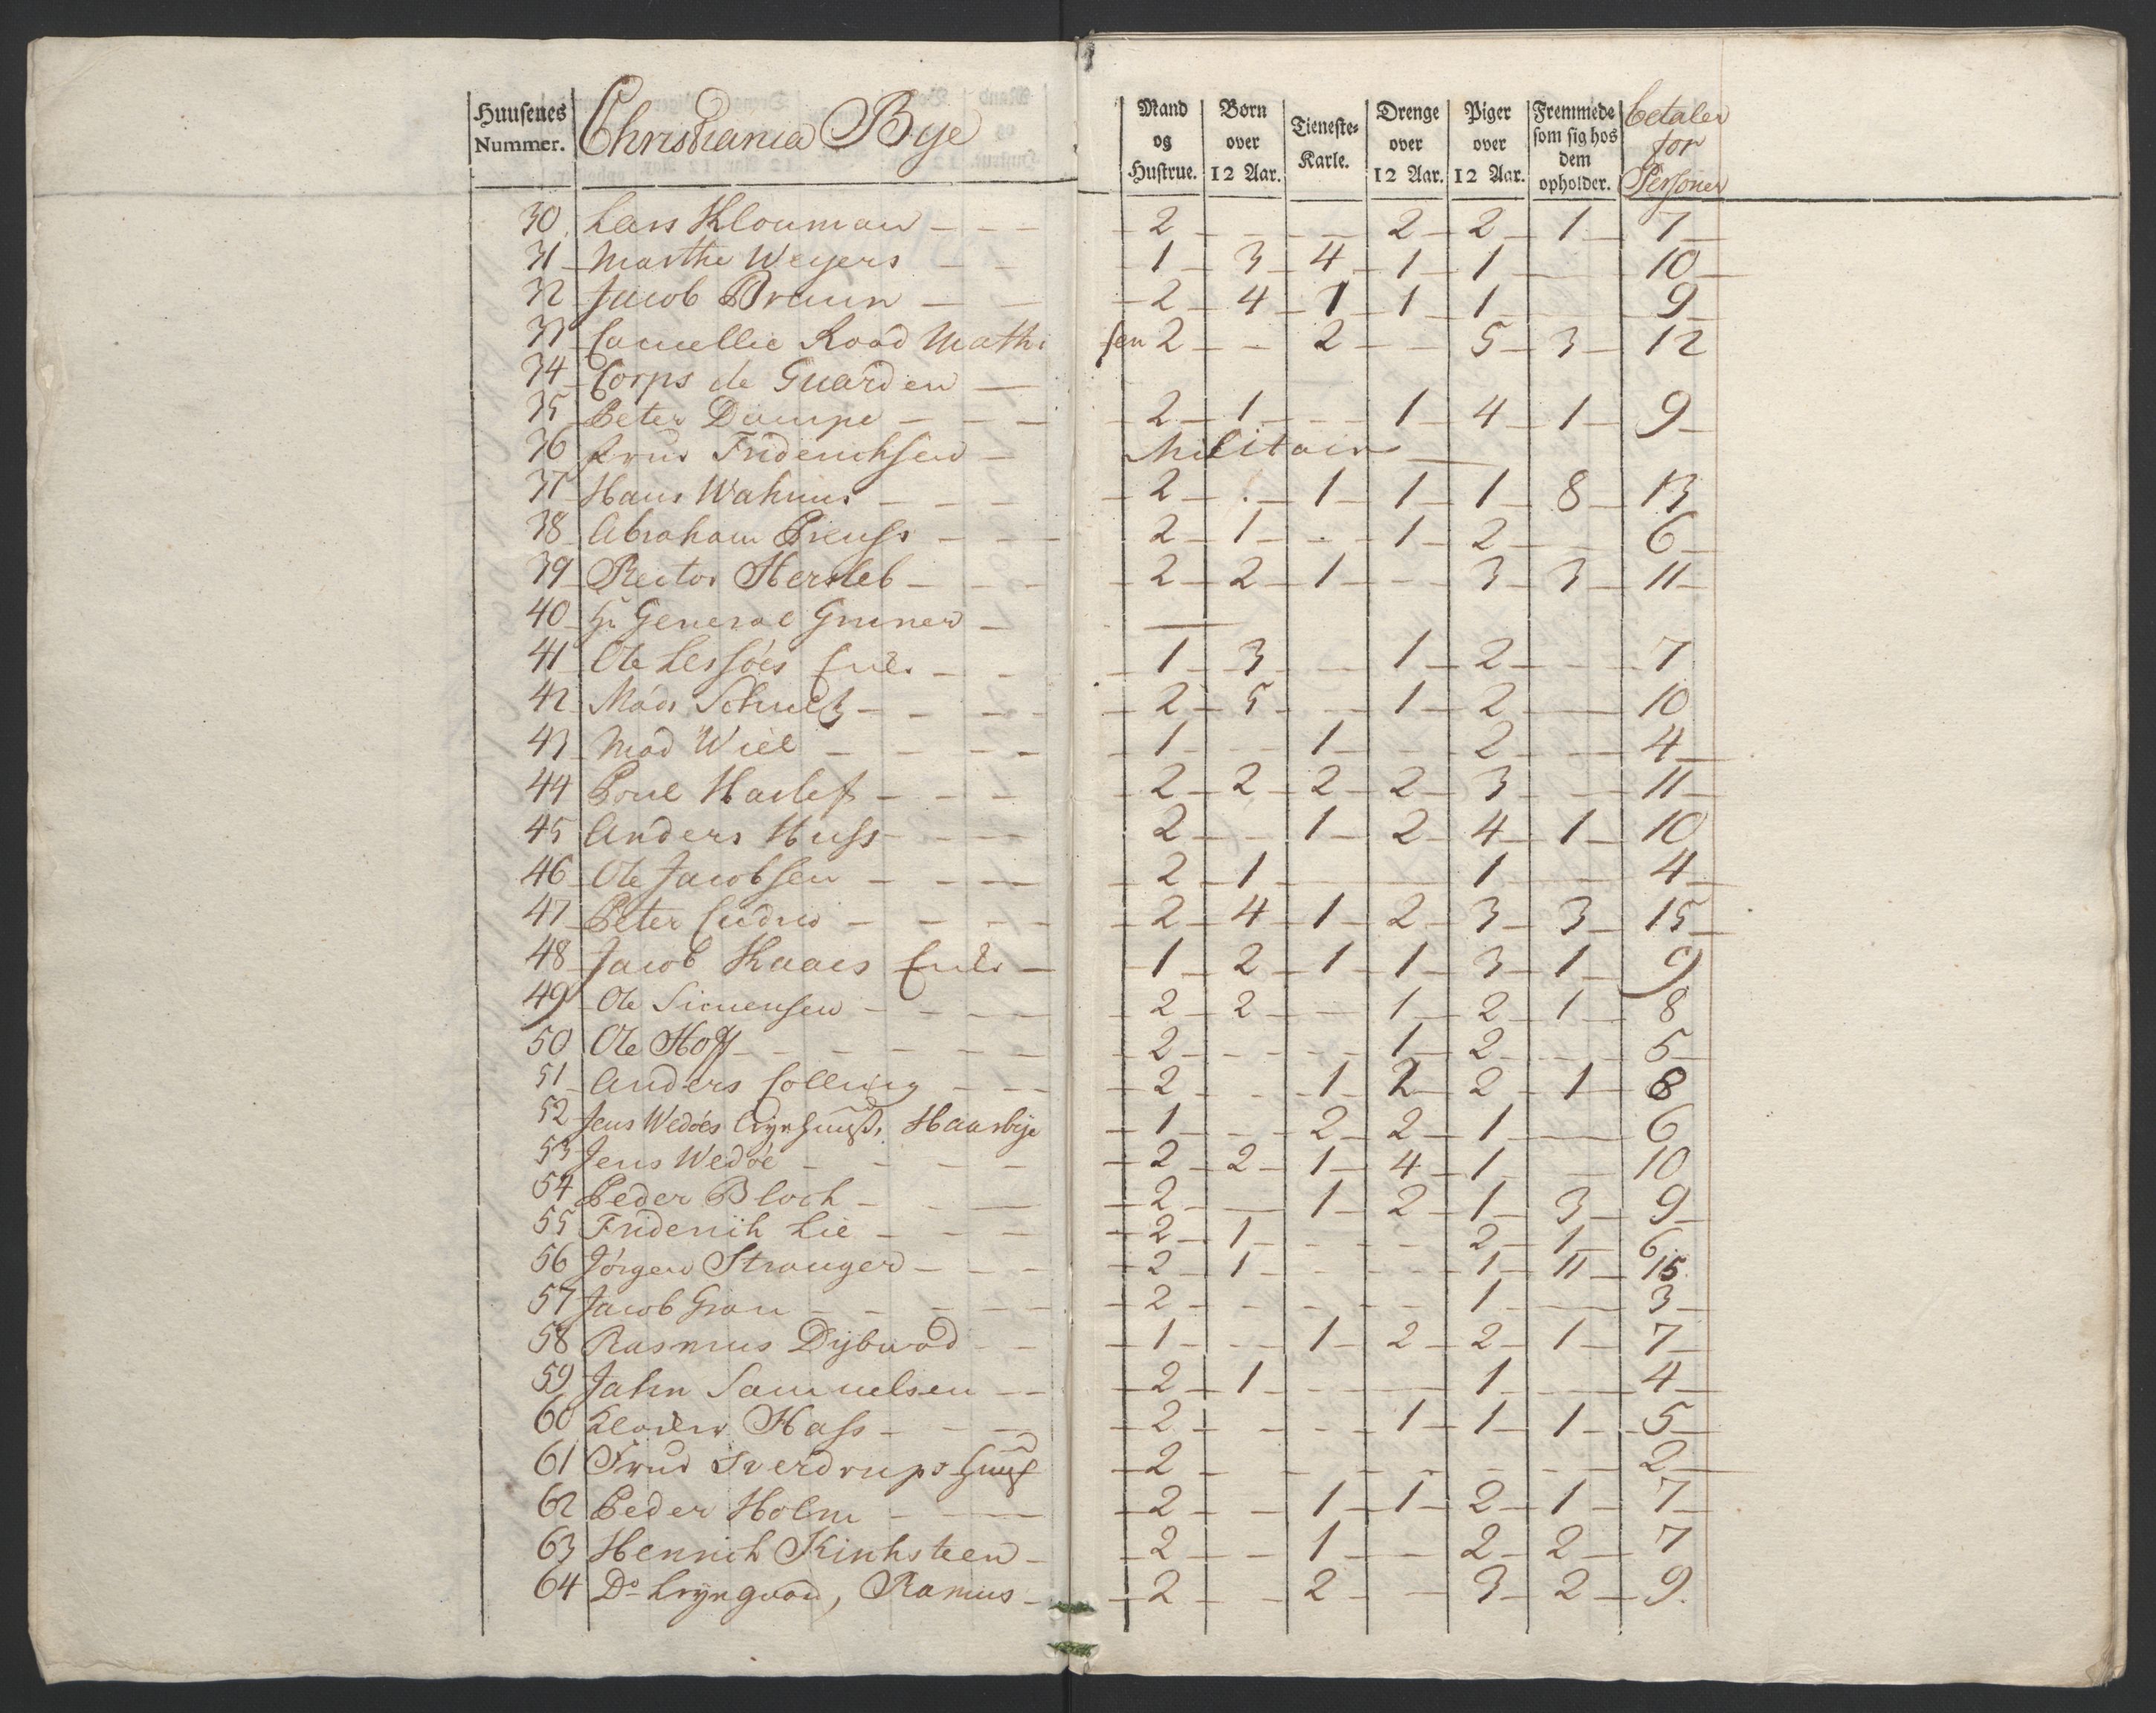 Huusenes Nummer. | Christiania Bye | Mand og Hustrue. | Born over 12 Aar. | Tieneste-Karle. | Drenge over 12 Aar. | Piger over 12 Aar. | Fremmede som sig hos dem opholder. | betaler for Persones
30 Lars Klouman - - - 2 - - 2 2 1 7
31 Marthe Weyers - - 1 3 4 1 1 - 10
32 Jacob Bruun - - 2 4 1 1 1 - 9
33 Cancellie Raad Mathisen 2 - 2 - 5 3 12
34 Corps de Guarden -
35 Peter Dampe - - - 2 1 - 1 4 1 9
36 Friderichsen - Militair
37 Hans - - - 2 - 1 1 1 8 13
38 Abraham Preuss - - - 2 1 - 1 2 - 6
39 Rector Hersleb - - - 2 2 1 - 3 3 11
40 Hr General Gruner - -
41 Ole Lessøes Enke - - 1 3 - 1 2 - 7
42 Mads Schultz - - - 2 5 - 1 2 - 10
43 Mad Wiel - - - - 1 - 1 - 2 - 4
44 Poul - - - 2 2 2 2 3 - 11
45 Anders Huss - - - 2 - 1 2 4 1 10
46 Ole Jacobsen - - - 2 1 - - 1 - 4
47 Peter - - - - 2 4 1 2 3 3 15
48 Jacob Kaaes Enke - 1 2 1 1 3 1 9
49 Ole Simensen - - - - 2 2 - 1 2 1 8
50 Ole Hoff - - - - - 2 - - 1 2 - 5
51 Anders Colling - - - 2 - 1 2 2 1 8
52 Jens Wedøes Haasbye 1 - 2 2 1 - 6
53 Jens Wedøe - - - - 2 2 1 4 1 - 10
54 Peder Bloch - - - 2 - 1 2 1 3 9
55 Friderich Lie - - - 2 1 - - 2 1 6
56 Jørgen Stranger - - - 2 1 - - 1 11 15
57 Jacob Gran - - - - - 2 - - - 1 - 3
58 Rasmus Dybwad - - 1 - 1 2 2 1 7
59 Jahn Samuelsen - - 2 1 - - 1 - 4
60 Hass - - - 2 - - 1 1 1 5
61 Frue Sverdrups Huus 2 - - - - - 2
62 Peder Holm - - - 2 - 1 1 2 1 7
63 Henrich Kinksteen - 2 - 1 - 2 2 7
64 Do Ramus - 2 - 2 - 3 2 9